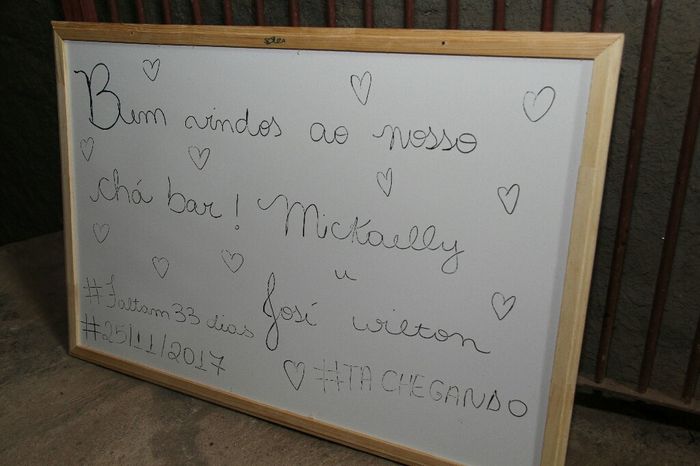 Bem vindos ao nosso
chá bar! Mickaelly
e
José wilton
#Faltam 33 dias
#25/11/2017
#TA CHEGANDO